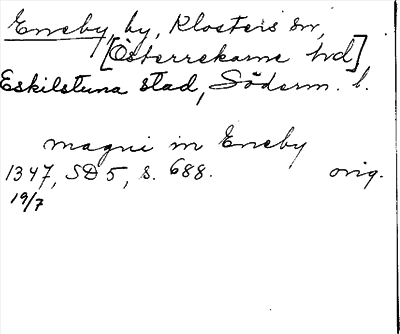 Eneby, by, Klosters sn,
[Österrekarne hd]
Eskilstuna stad, Söderm. l.
magni in Eneby
1347, SD 5, s. 688. orig.
19/7